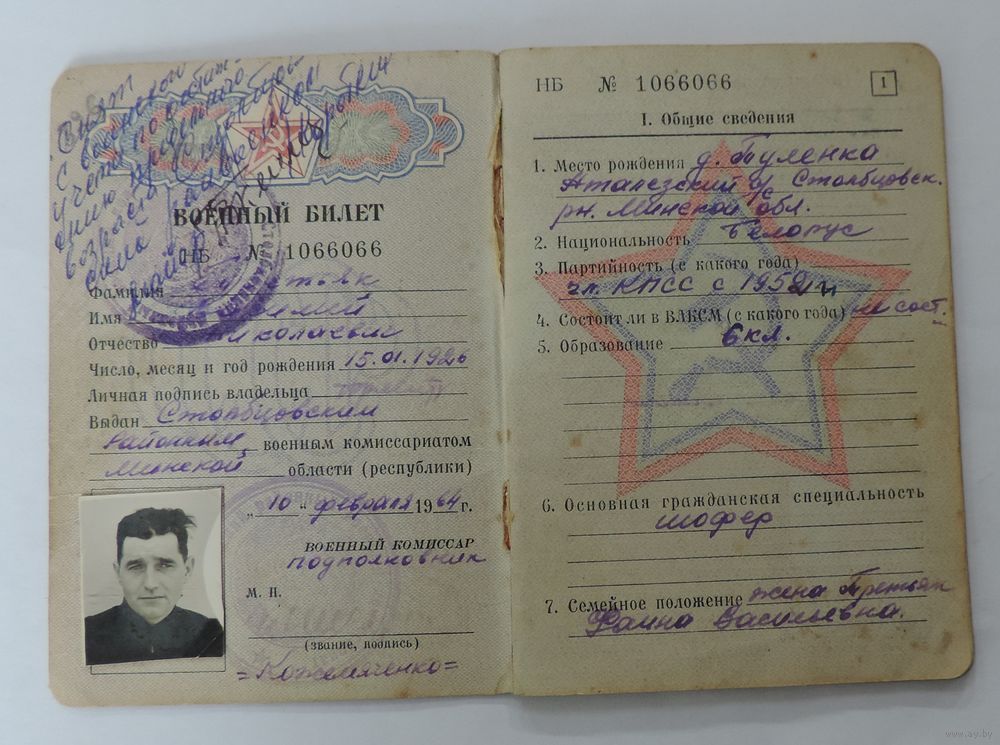 Снят
с воинского
учета по достиж-
ению предельного
возраста
ВОЕННЫЙ БИЛЕТ
НБ № 1066066
Фамилия
Имя
Отчество Николаевич
Число, месяц и год рождения 15.01.1926
Личная подпись владельца
Выдан Столбцовским
районным военным комиссариатом
Минской области (республики)
„10“ февраля 1964 г.
ВОЕННЫЙ КОМИССАР
подполковник
М. П.
(звание, подпись)
=Кожемяченко=
НБ № 1066066
1
I. Общие сведения
1. Место рождения д. Туленка
Аталезский с/с Столбцовск.
рн. Минской обл.
2. Национальность Белорус
3. Партийность (с какого года)
чл. КПСС с 1952 г.
4. Состоит ли в ВЛКСМ (с какого года) не сост.
5. Образование 6 кл.
6. Основная гражданская специальность
шофер
7. Семейное положение жена Третьяк
Фаина Васильевна.
www.ay.by